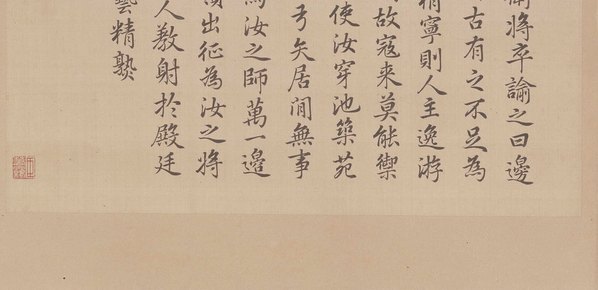 將卒諭之曰邊
古有之不足為
稍寧則人主逸游
故寇来莫能禦
使汝穿池築苑
弓矢居閒無事
為汝之師萬一邊
出征為汝之將
人教射於殿廷
藝精熟